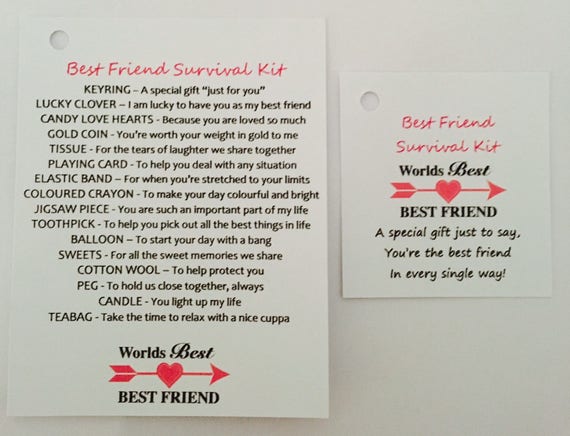 Best Friend Survival Kit
KEYRING – A special gift “just for you”
LUCKY CLOVER – I am lucky to have you as my best friend
CANDY LOVE HEARTS - Because you are loved so much
GOLD COIN - You’re worth your weight in gold to me
TISSUE - For the tears of laughter we share together
PLAYING CARD - To help you deal with any situation
ELASTIC BAND – For when you’re stretched to your limits
COLOURED CRAYON - To make your day colourful and bright
JIGSAW PIECE - You are such an important part of my life
TOOTHPICK - To help you pick out all the best things in life
BALLOON – To start your day with a bang
SWEETS - For all the sweet memories we share
COTTON WOOL – To help protect you
PEG - To hold us close together, always
CANDLE - You light up my life
TEABAG - Take the time to relax with a nice cuppa
Worlds Best
BEST FRIEND
Best Friend
Survival Kit
Worlds Best
BEST FRIEND
A special gift just to say,
You’re the best friend
In every single way!